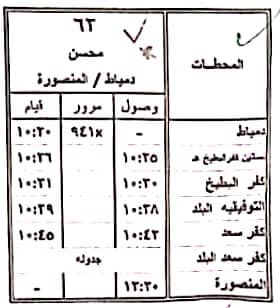 ٦٢
محسن
دمياط / المنصورة
المحطات
وصول مرور قيام
دمياط - ٩٤١x ١٠:٢٠
بساتين كفر البطيخ هـ ١٠:٢٥ ١٠:٢٦
كفر البطيخ ١٠:٣٠ ١٠:٣١
التوفيقيه البلد ١٠:٣٨ ١٠:٣٩
كفر سعد ١٠:٤٣ ١٠:٤٥
كفر سعد البلد جدوله
المنصورة ١٢:٣٠ -